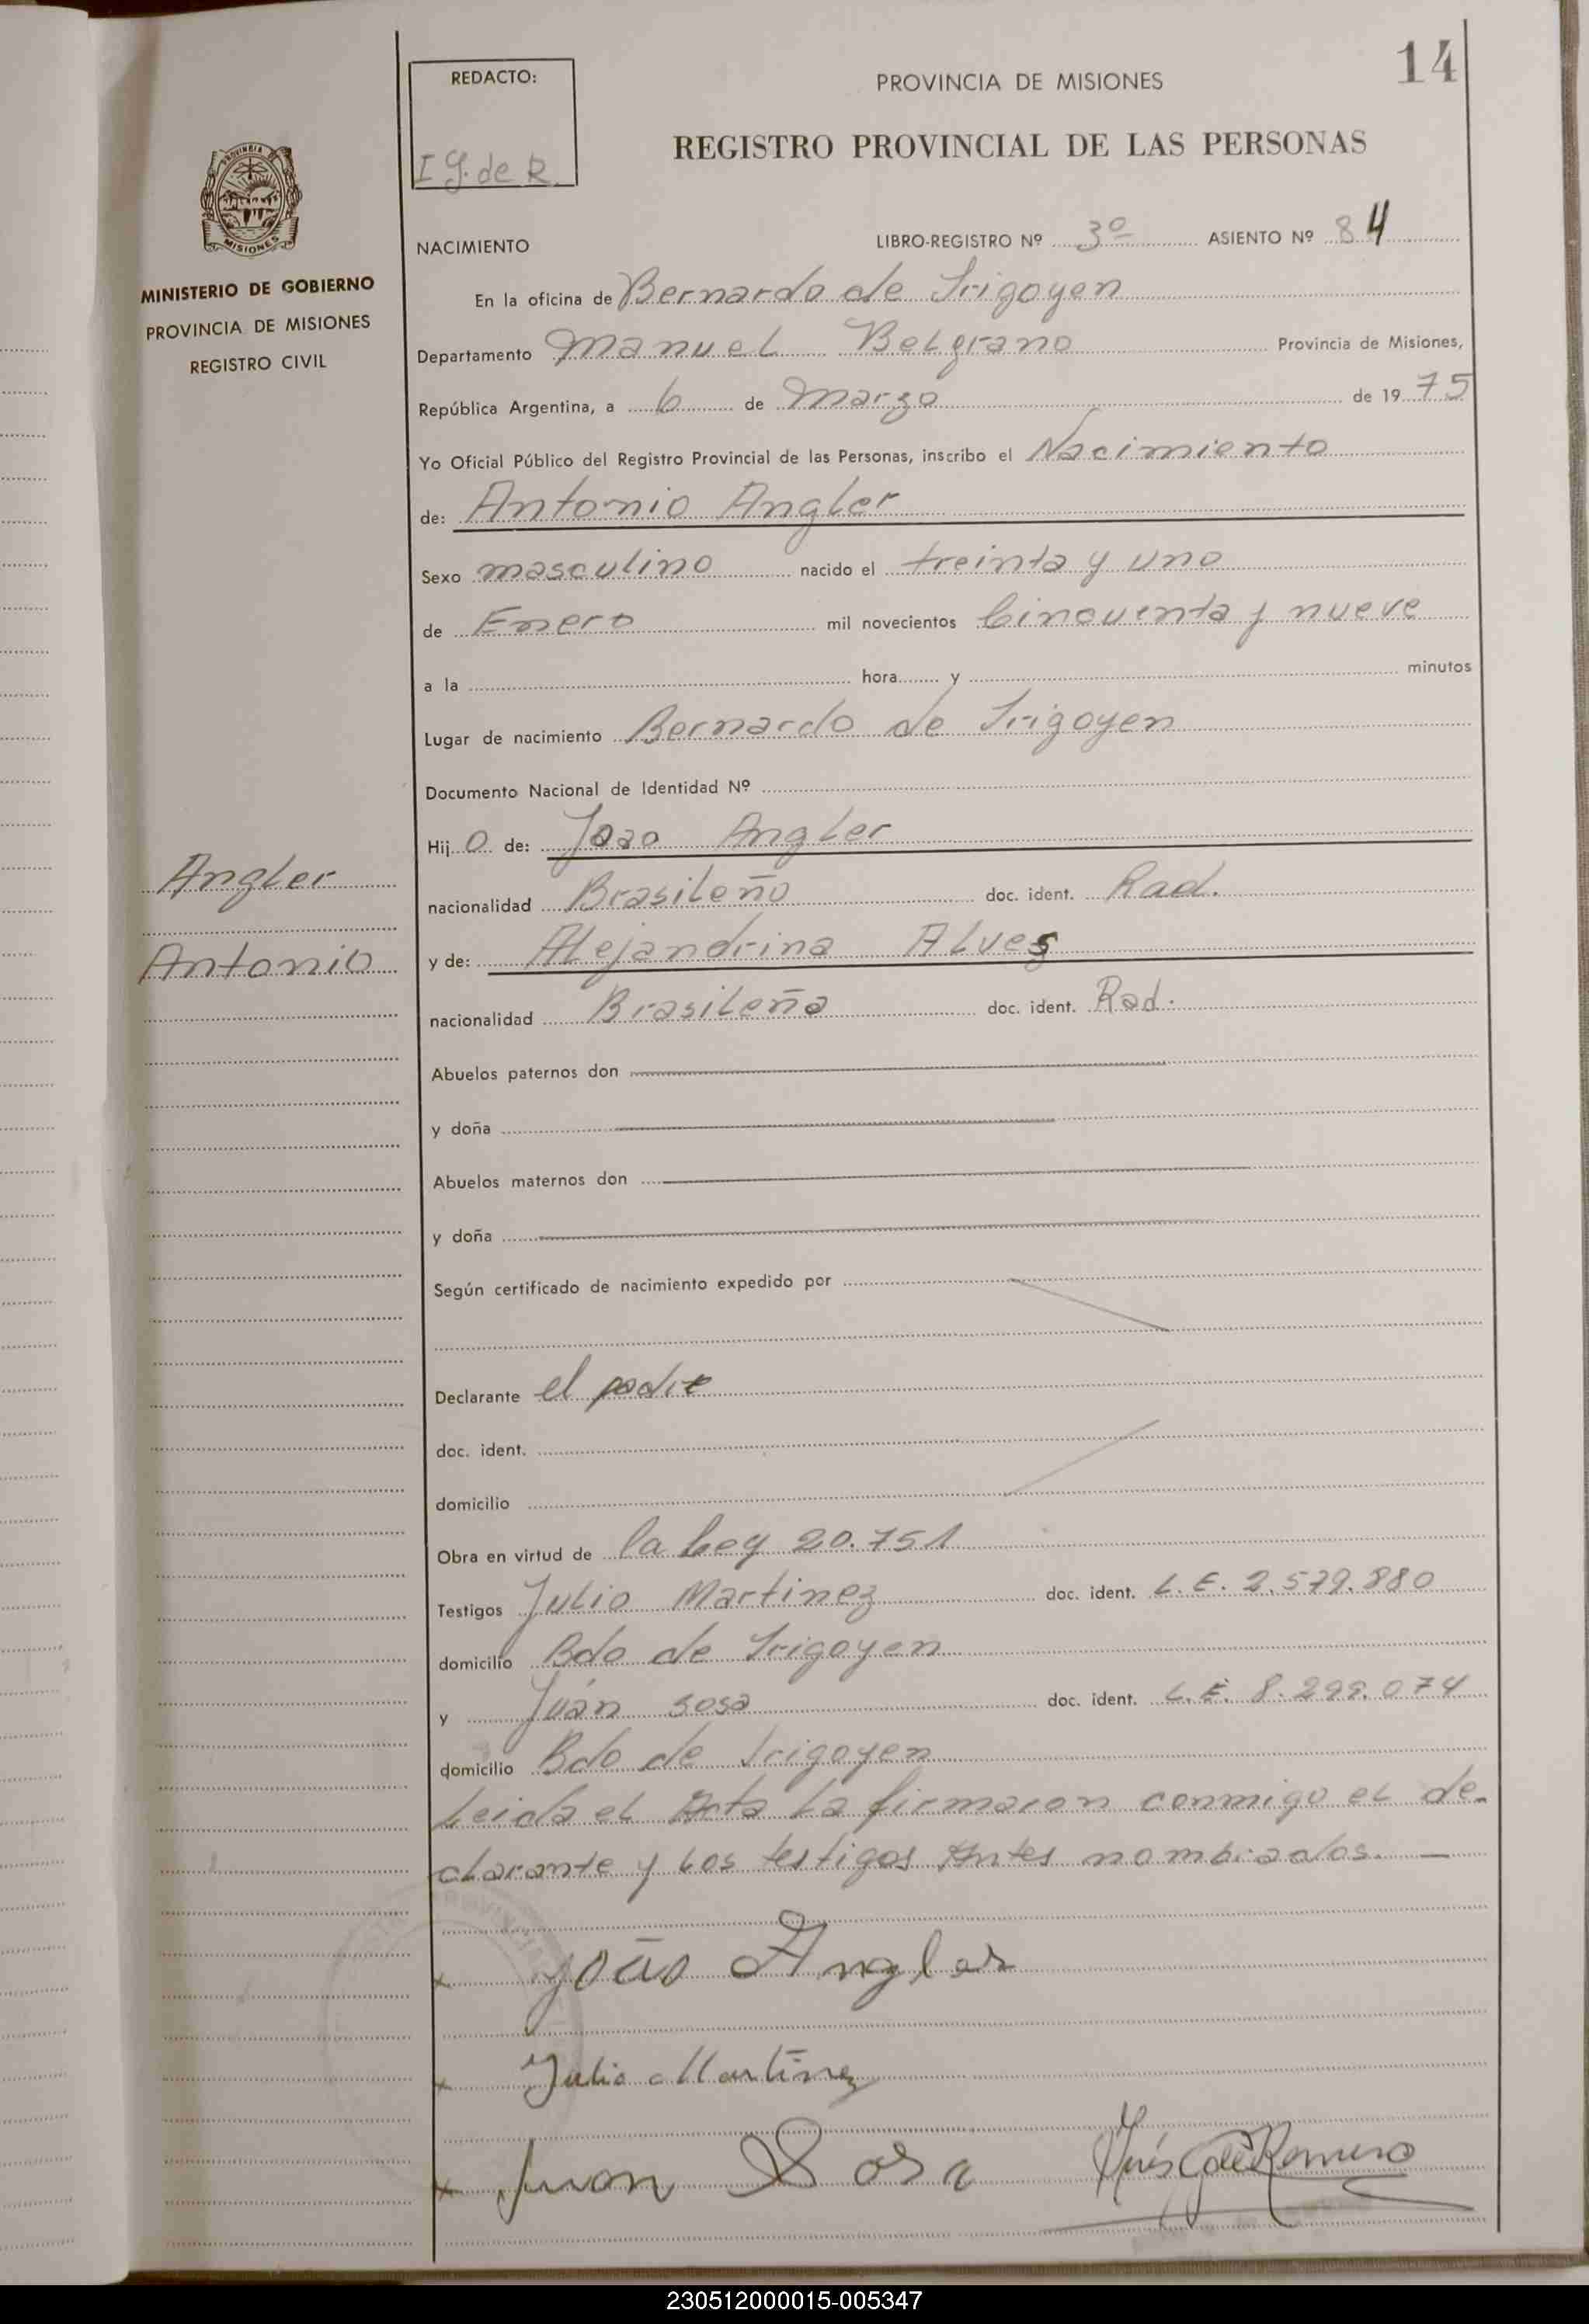 14
REDACTO:
I G. de R.
PROVINCIA DE MISIONES
REGISTRO PROVINCIAL DE LAS PERSONAS
MISIONES
MINISTERIO DE GOBIERNO
PROVINCIA DE MISIONES
REGISTRO CIVIL
Angler
Antonio
NACIMIENTO LIBRO-REGISTRO Nº 3º ASIENTO Nº 84
En la oficina de Bernardo de Irigoyen
Departamento Manuel Belgrano Provincia de Misiones,
República Argentina, a 6 de Marzo de 1975
Yo Oficial Público del Registro Provincial de las Personas, inscribo el Nacimiento
de: Antonio Angler
Sexo masculino nacido el treinta y uno
de Enero mil novecientos Cincuenta y nueve
a la hora y minutos
Lugar de nacimiento Bernardo de Irigoyen
Documento Nacional de Identidad Nº
Hij O de: Joao Angler
nacionalidad Brasileño doc. ident. Rad.
y de: Alejandrina Alves
nacionalidad Brasileña doc. ident. Rad.
Abuelos paternos don
y doña
Abuelos maternos don
y doña
Según certificado de nacimiento expedido por
Declarante el padre
doc. ident.
domicilio
Obra en virtud de la Ley 20.751
Testigos Julio Martinez doc. ident. L.E. 2.579.880
domicilio Bdo de Irigoyen
y Juán Sosa doc. ident. L.E. 8.299.074
domicilio Bdo de Irigoyen
Leida el Acta la firmaron conmigo el de-
clarante y los testigos Antes nombrados. —
x João Angler
x Julio Martinez
x Juan Sosa Inés G de Romero
230512000015-005347